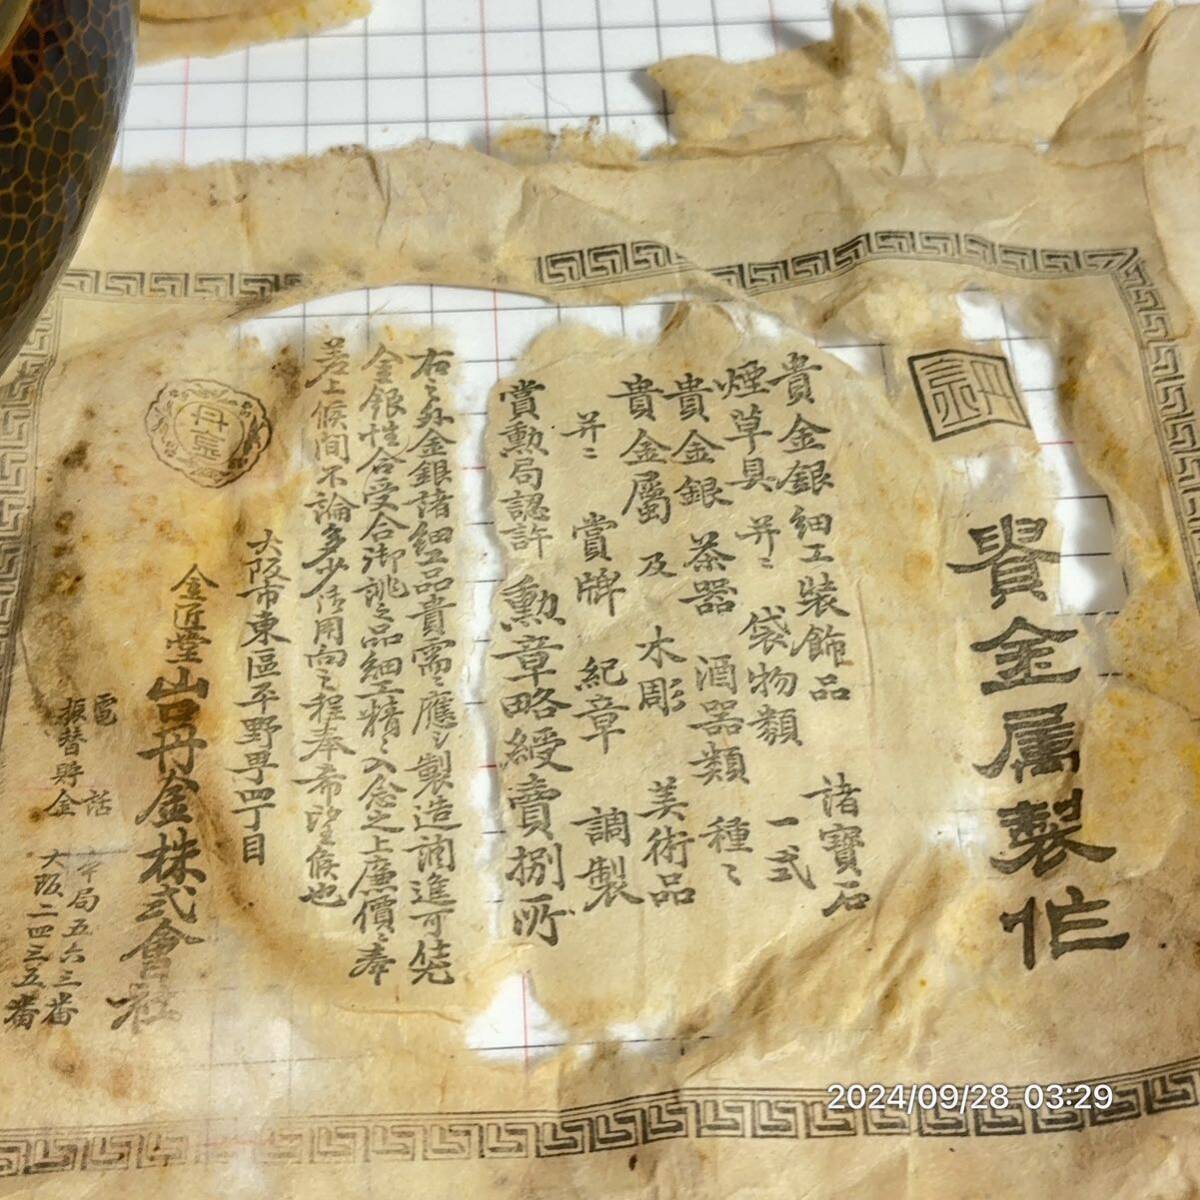 貴金属製作
貴金銀細工装飾品 諸寶石
煙草具 并ニ 袋物類 一式
貴金銀 茶器 酒器類 種々
貴金屬 及 木彫 美術品
并ニ 賞牌 紀章 調製
賞勲局認許 勲章略綬賣捌所
右之外金銀諸細工品貴需ニ應シ製造調進可仕
金銀性合受合御誂之品細工精々入念之上廉價ニ奉
差上候間不論多少御用向之程奉希望候也
大阪市東區平野町四丁目
金匠堂 山口丹金株式會社
電話 本局五六三番
振替貯金 大阪二四三五番
2024/09/28 03:29